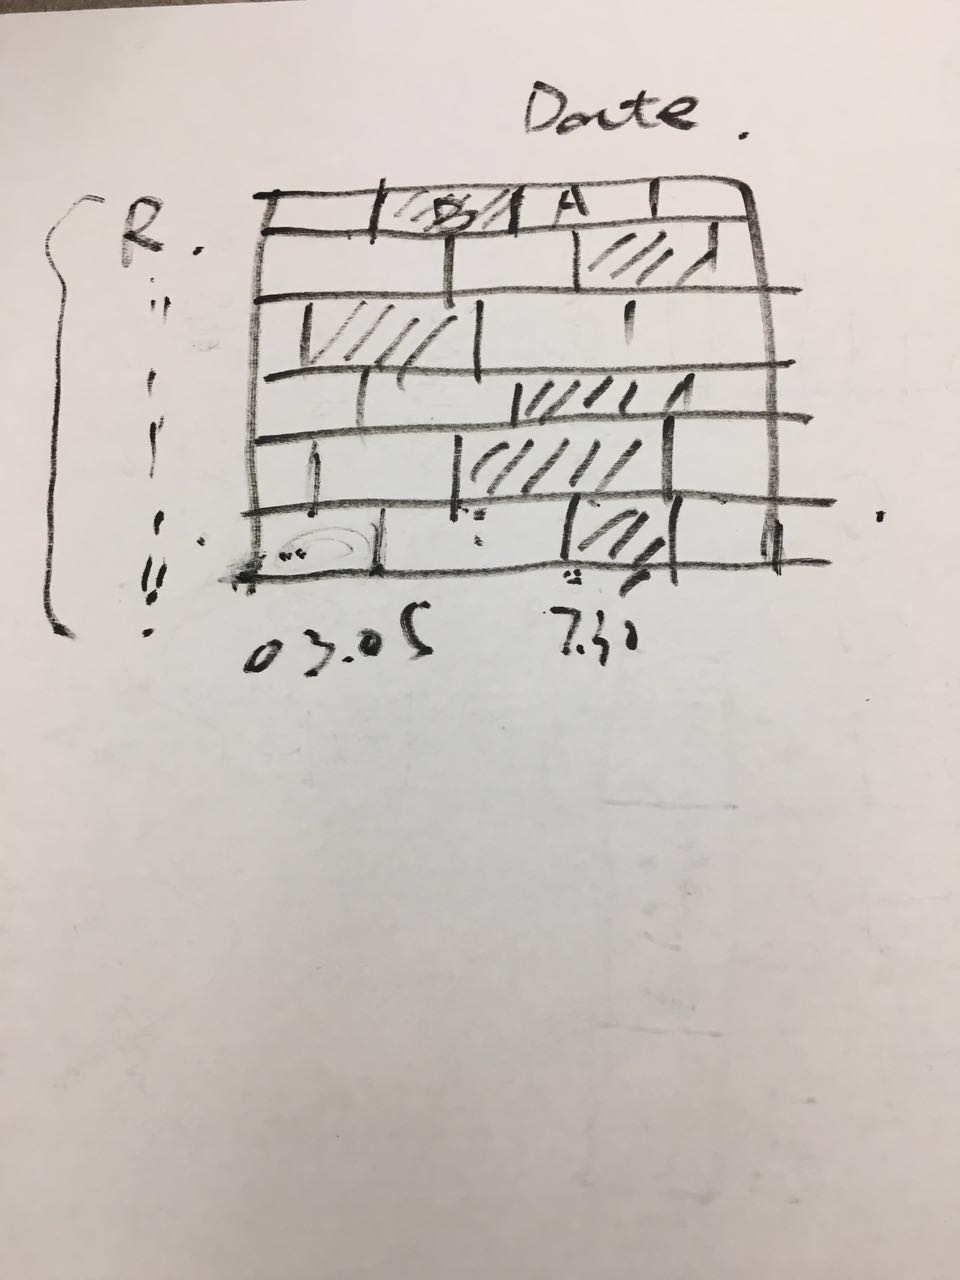 Date.
R.
B A
03.05 7.30